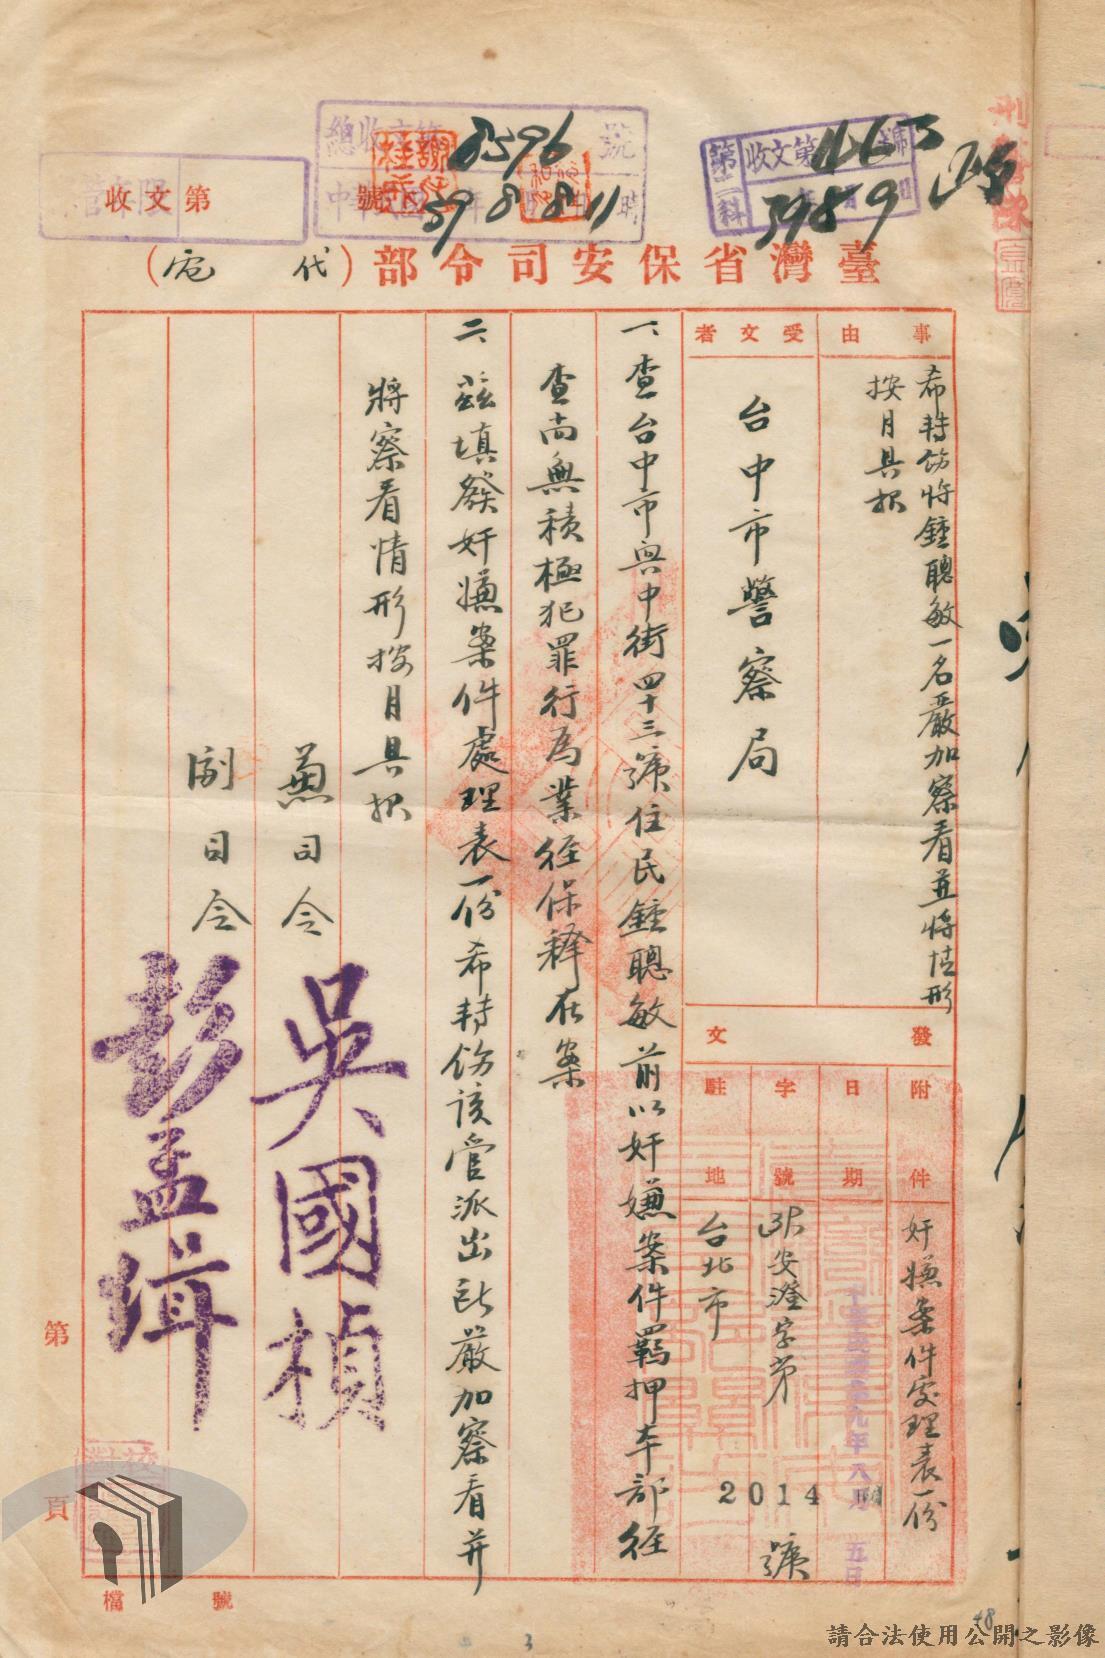 總收文第8596號
39 8 8 11時
第二科收文第1163號
39 8 9
收文第 號
臺灣省保安司令部(代電)
事由
希轉飭將鍾聰敏一名嚴加察看並將情形
按月具报
受文者
台中市警察局
發文
附件
奸嫌案件處理表一份
日期
中華民國卅九年八月五日
字號
安澄字第2014號
駐地
台北市
一、查台中市興中街四十三號住民鍾聰敏前以奸嫌案件羈押本部經
查尚無積極犯罪行為業經保釋在案
二、茲填發奸嫌案件處理表一份希轉飭該管派出所嚴加察看并
將察看情形按月具报
兼司令
吳國楨
副司令
彭孟緝
第 頁
檔 號
3
48
請合法使用公開之影像